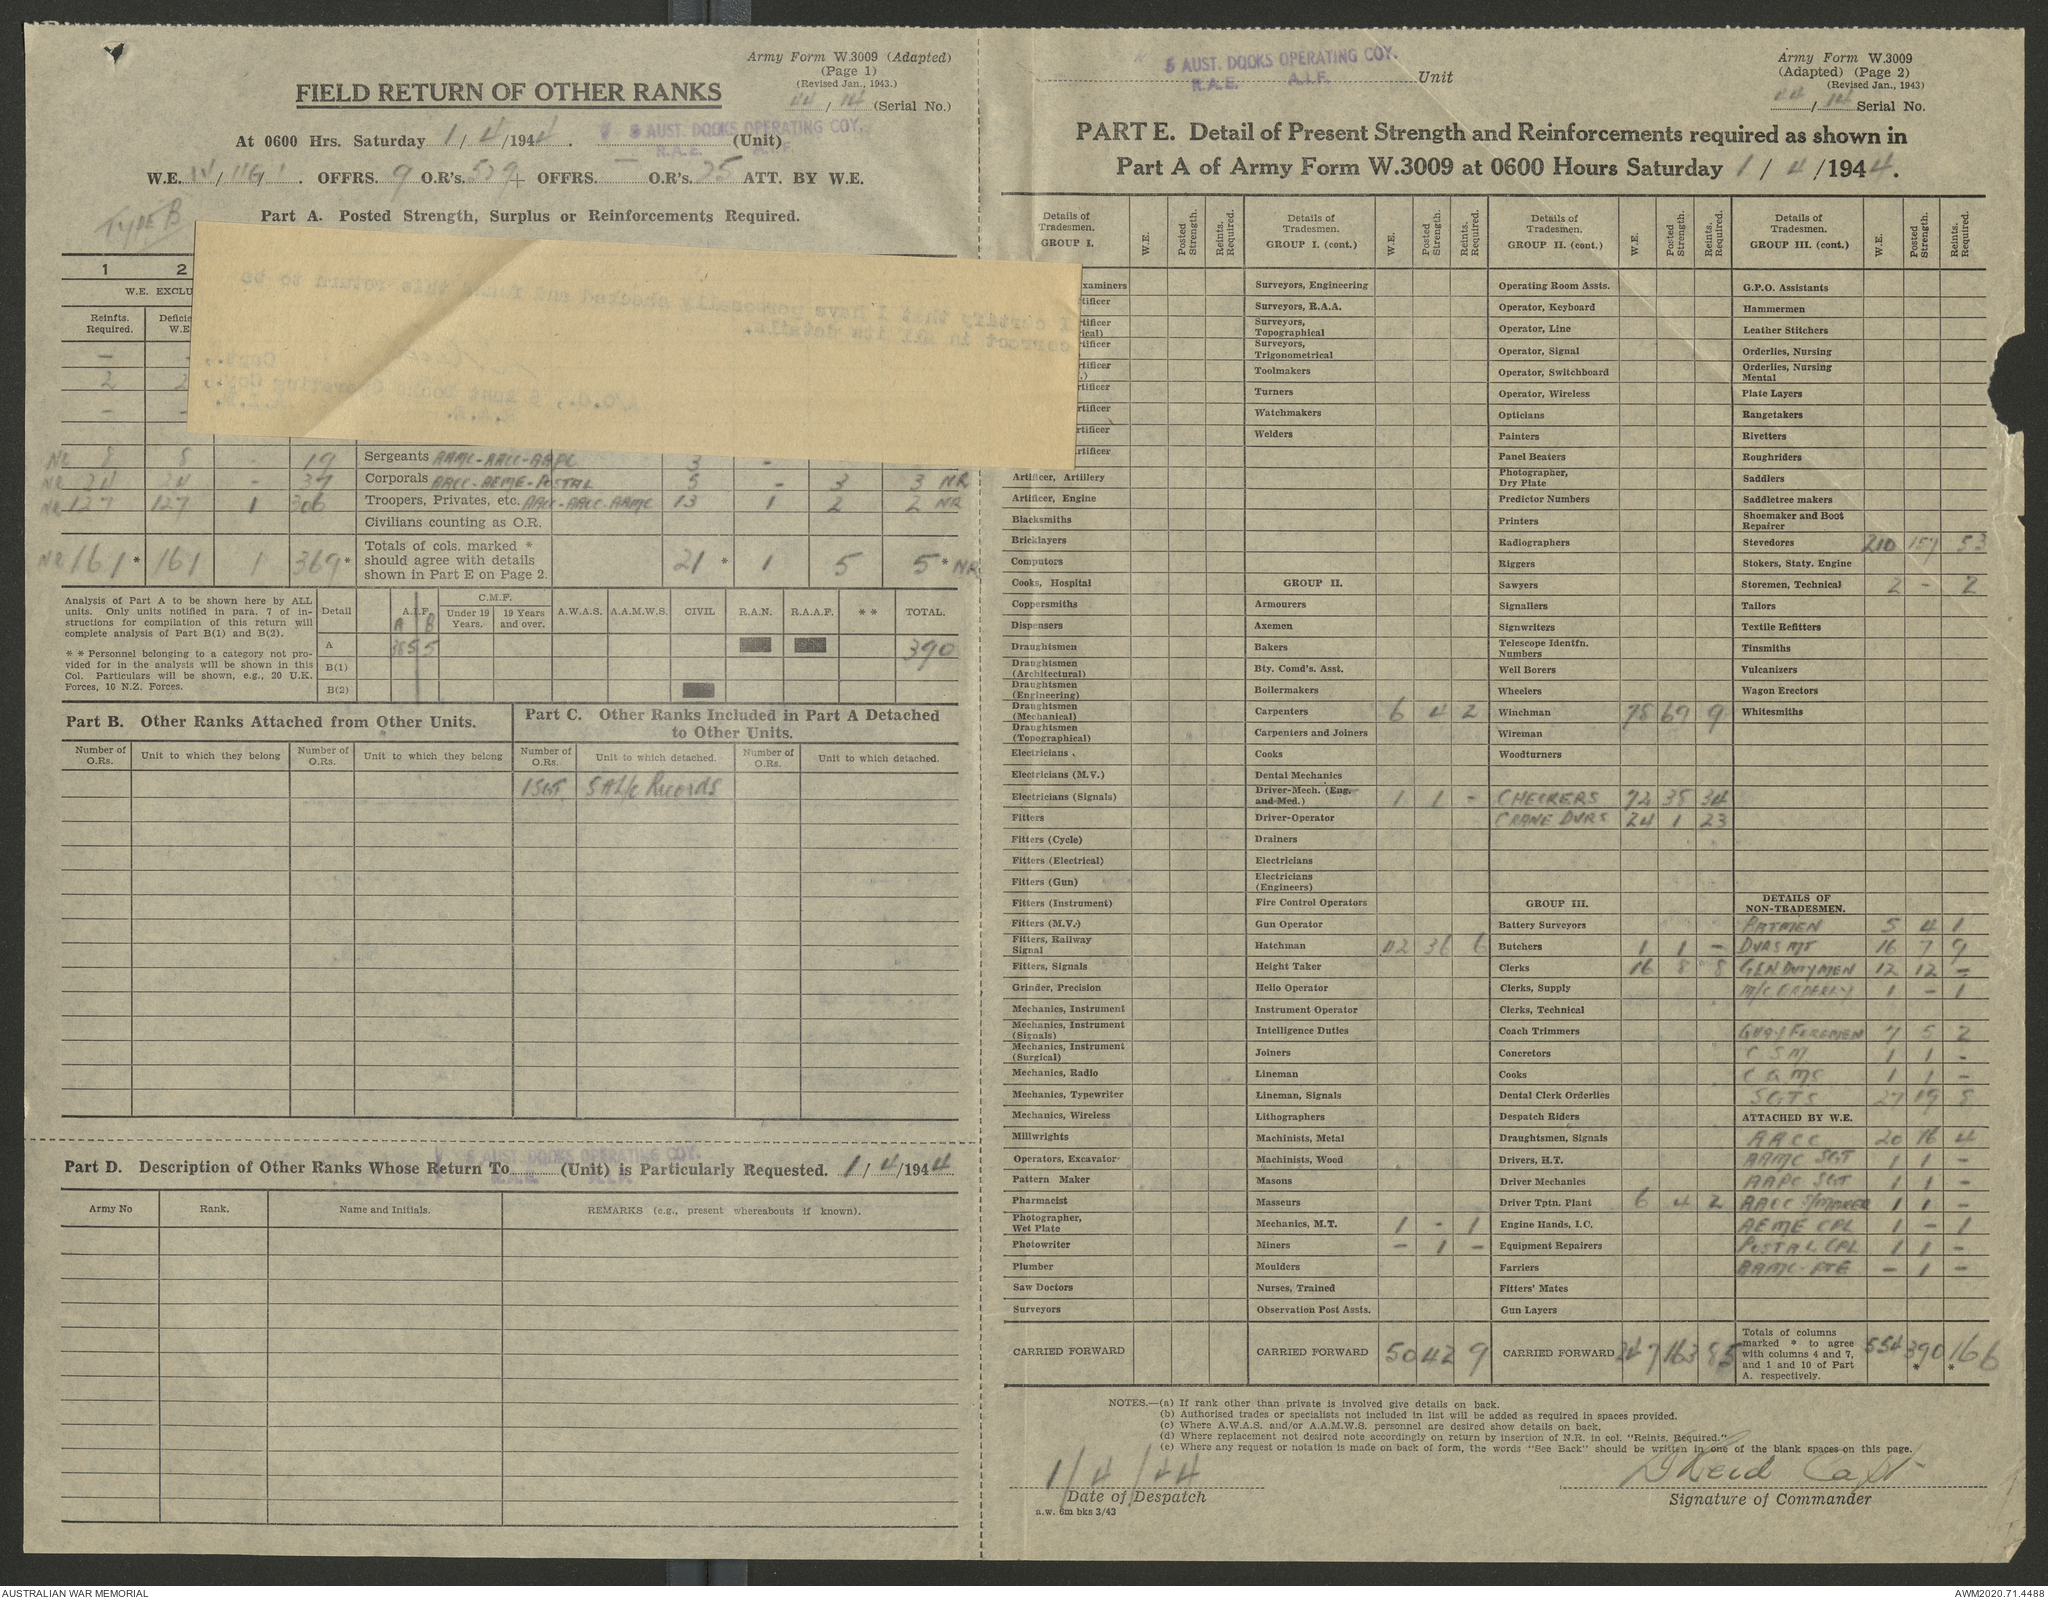 Army Form W.3009 (Adapted)
(Page 1)
(Revised Jan., 1943.)
44 / 14 (Serial No.)
FIELD RETURN OF OTHER RANKS
At 0600 Hrs. Saturday 1 / 4 /1944. 5 AUST. DOCKS OPERATING COY. (Unit)
R.A.E. A.I.F.
W.E. OFFRS. 9 O.R's. OFFRS. — O.R's. 25 ATT. BY W.E.
TYPE B
Part A. Posted Strength, Surplus or Reinforcements Required.
1 2
W.E. EXCLU
Reinfts. Required. Deficie W.E
—
2 2
— —
I certify that I have personally checked and found this return to be
correct in all its details.
Capt.,
A/O.C., 5 Aust Docks Operating Coy.,
R.A.E. A.I.F.
NR 8 8 - 19 Sergeants AAMC-AACC-AAPC 3 -
NR 24 24 - 37 Corporals AACC-AEME-POSTAL 5 - 3 3 NR
NR 127 127 1 306 Troopers, Privates, etc. AACC-AACC-AAMC 13 1 2 2 NR
Civilians counting as O.R.
NR 161* 161 1 369* Totals of cols. marked * should agree with details shown in Part E on Page 2. 21 * 1 5 5 * NR
Analysis of Part A to be shown here by ALL units. Only units notified in para. 7 of instructions for compilation of this return will complete analysis of Part B(1) and B(2).
* * Personnel belonging to a category not provided for in the analysis will be shown in this Col. Particulars will be shown, e.g., 20 U.K. Forces, 10 N.Z. Forces.
Detail A.I.F. A B C.M.F. Under 19 Years. 19 Years and over. A.W.A.S. A.A.M.W.S. CIVIL R.A.N. R.A.A.F. * * TOTAL.
A 385 5 390
B(1)
B(2)
Part B. Other Ranks Attached from Other Units.
Part C. Other Ranks Included in Part A Detached to Other Units.
Number of O.Rs. Unit to which they belong Number of O.Rs. Unit to which they belong Number of O.Rs. Unit to which detached. Number of O.Rs. Unit to which detached.
1 SGT. S A L/C Records
Part D. Description of Other Ranks Whose Return To 5 AUST. DOCKS OPERATING COY. (Unit) is Particularly Requested. 1 / 4 /1944
R.A.E. A.I.F.
Army No Rank. Name and Initials. REMARKS (e.g., present whereabouts if known).
5 AUST. DOCKS OPERATING COY. Unit
R.A.E. A.I.F.
Army Form W.3009
(Adapted) (Page 2)
(Revised Jan., 1943)
44 / 14 Serial No.
PART E. Detail of Present Strength and Reinforcements required as shown in
Part A of Army Form W.3009 at 0600 Hours Saturday 1 / 4 /1944.
Details of Tradesmen. GROUP I. W.E. Posted Strength. Reints. Required.
xaminers
tificer
tificer
ical)
rtificer
rtificer
.)
rtificer
rtificer
rtificer
rtificer
Artificer, Artillery
Artificer, Engine
Blacksmiths
Bricklayers
Computors
Cooks, Hospital
Coppersmiths
Dispensers
Draughtsmen
Draughtsmen (Architectural)
Draughtsmen (Engineering)
Draughtsmen (Mechanical)
Draughtsmen (Topographical)
Electricians
Electricians (M.V.)
Electricians (Signals)
Fitters
Fitters (Cycle)
Fitters (Electrical)
Fitters (Gun)
Fitters (Instrument)
Fitters (M.V.)
Fitters, Railway Signal
Fitters, Signals
Grinder, Precision
Mechanics, Instrument
Mechanics, Instrument (Signals)
Mechanics, Instrument (Surgical)
Mechanics, Radio
Mechanics, Typewriter
Mechanics, Wireless
Millwrights
Operators, Excavator
Pattern Maker
Pharmacist
Photographer, Wet Plate
Photowriter
Plumber
Saw Doctors
Surveyors
CARRIED FORWARD
Details of Tradesmen. GROUP I. (cont.) W.E. Posted Strength. Reints. Required.
Surveyors, Engineering
Surveyors, R.A.A.
Surveyors, Topographical
Surveyors, Trigonometrical
Toolmakers
Turners
Watchmakers
Welders
GROUP II.
Armourers
Axemen
Bakers
Bty. Comd's. Asst.
Boilermakers
Carpenters 6 4 2
Carpenters and Joiners
Cooks
Dental Mechanics
Driver-Mech. (Eng. and Med.) 1 1 -
Driver-Operator
Drainers
Electricians
Electricians (Engineers)
Fire Control Operators
Gun Operator
Hatchman 42 36 6
Height Taker
Helio Operator
Instrument Operator
Intelligence Duties
Joiners
Lineman
Lineman, Signals
Lithographers
Machinists, Metal
Machinists, Wood
Masons
Masseurs
Mechanics, M.T. 1 - 1
Miners — 1 —
Moulders
Nurses, Trained
Observation Post Assts.
CARRIED FORWARD 50 42 9
Details of Tradesmen. GROUP II. (cont.) W.E. Posted Strength. Reints. Required.
Operating Room Assts.
Operator, Keyboard
Operator, Line
Operator, Signal
Operator, Switchboard
Operator, Wireless
Opticians
Painters
Panel Beaters
Photographer, Dry Plate
Predictor Numbers
Printers
Radiographers
Riggers
Sawyers
Signallers
Signwriters
Telescope Identfn. Numbers
Well Borers
Wheelers
Winchman 78 69 9
Wireman
Woodturners
CHECKERS 72 38 34
CRANE DVRS 24 1 23
GROUP III.
Battery Surveyors
Butchers 1 1 —
Clerks 16 8 8
Clerks, Supply
Clerks, Technical
Coach Trimmers
Concretors
Cooks
Dental Clerk Orderlies
Despatch Riders
Draughtsmen, Signals
Drivers, H.T.
Driver Mechanics
Driver Tptn. Plant 6 4 2
Engine Hands, I.C.
Equipment Repairers
Farriers
Fitters' Mates
Gun Layers
CARRIED FORWARD 347 163 85
Details of Tradesmen. GROUP III. (cont.) W.E. Posted Strength. Reints. Required.
G.P.O. Assistants
Hammermen
Leather Stitchers
Orderlies, Nursing
Orderlies, Nursing Mental
Plate Layers
Rangetakers
Rivetters
Roughriders
Saddlers
Saddletree makers
Shoemaker and Boot Repairer
Stevedores 210 157 53
Stokers, Staty. Engine
Storemen, Technical 2 - 2
Tailors
Textile Refitters
Tinsmiths
Vulcanizers
Wagon Erectors
Whitesmiths
DETAILS OF NON-TRADESMEN.
BATMEN 5 4 1
DVRS MT 16 7 9
GEN DUTYMEN 12 12 —
M/C ORDERLY 1 - 1
QUAY FOREMEN 7 5 2
C S M 1 1 -
C Q M S 1 1 -
SGTS 27 19 8
ATTACHED BY W.E.
AACC 20 16 4
AAMC SGT 1 1 -
AAPC SGT 1 1 -
AACC S/MAKER 1 1 -
AEME CPL 1 - 1
POSTAL CPL 1 1 -
AAMC-PTE — 1 —
Totals of columns marked * to agree with columns 4 and 7, and 1 and 10 of Part A. respectively. 554 390* 166*
NOTES.—(a) If rank other than private is involved give details on back.
(b) Authorised trades or specialists not included in list will be added as required in spaces provided.
(c) Where A.W.A.S. and/or A.A.M.W.S. personnel are desired show details on back.
(d) Where replacement not desired note accordingly on return by insertion of N.R. in col. "Reints. Required."
(e) Where any request or notation is made on back of form, the words "See Back" should be written in one of the blank spaces on this page.
1/4/44
Date of Despatch
a.w. 6m bks 3/43
Reid Capt
Signature of Commander
AUSTRALIAN WAR MEMORIAL
AWM2020.71.4488